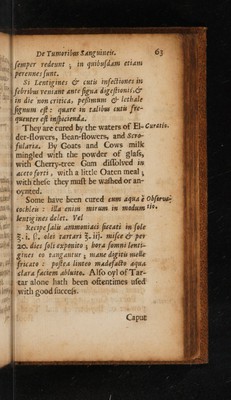 De Tumoribus Sanguineis. 63
semper redeunt ; in quibusdam etiam
perennes sunt.
Si Lentigines & cutis infectiones in
febribus veniant ante signa digestionis, &
in die non critica, pessimum & lethale
signum est : quare in talibus cutis fre-
quenter est inspicienda.
They are cured by the waters of El- Curatio.
der-flowers, Bean-flowers, and Scro-
fularia. By Goats and Cows milk
mingled with the powder of glass,
with Cherry-tree Gum dissolved in
aceto forti, with a little Oaten meal ;
with these they must be washed or an-
oynted.
Some have been cured cum aqua è Observa-
cochleis : illa enim mirum in modum tio.
lentigines delet. Vel
Recipe salis ammoniaci siccati in sole
℥. i. ß. olei tartari ℥. iij. misce & per
20. dies soli exponito ; hora somni lenti-
gines eo tangantur ; mane digitis molle
fricato : postea linteo madefacto aqua
clara faciem abluito. Also oyl of Tar-
tar alone hath been oftentimes used
with good success.
Caput